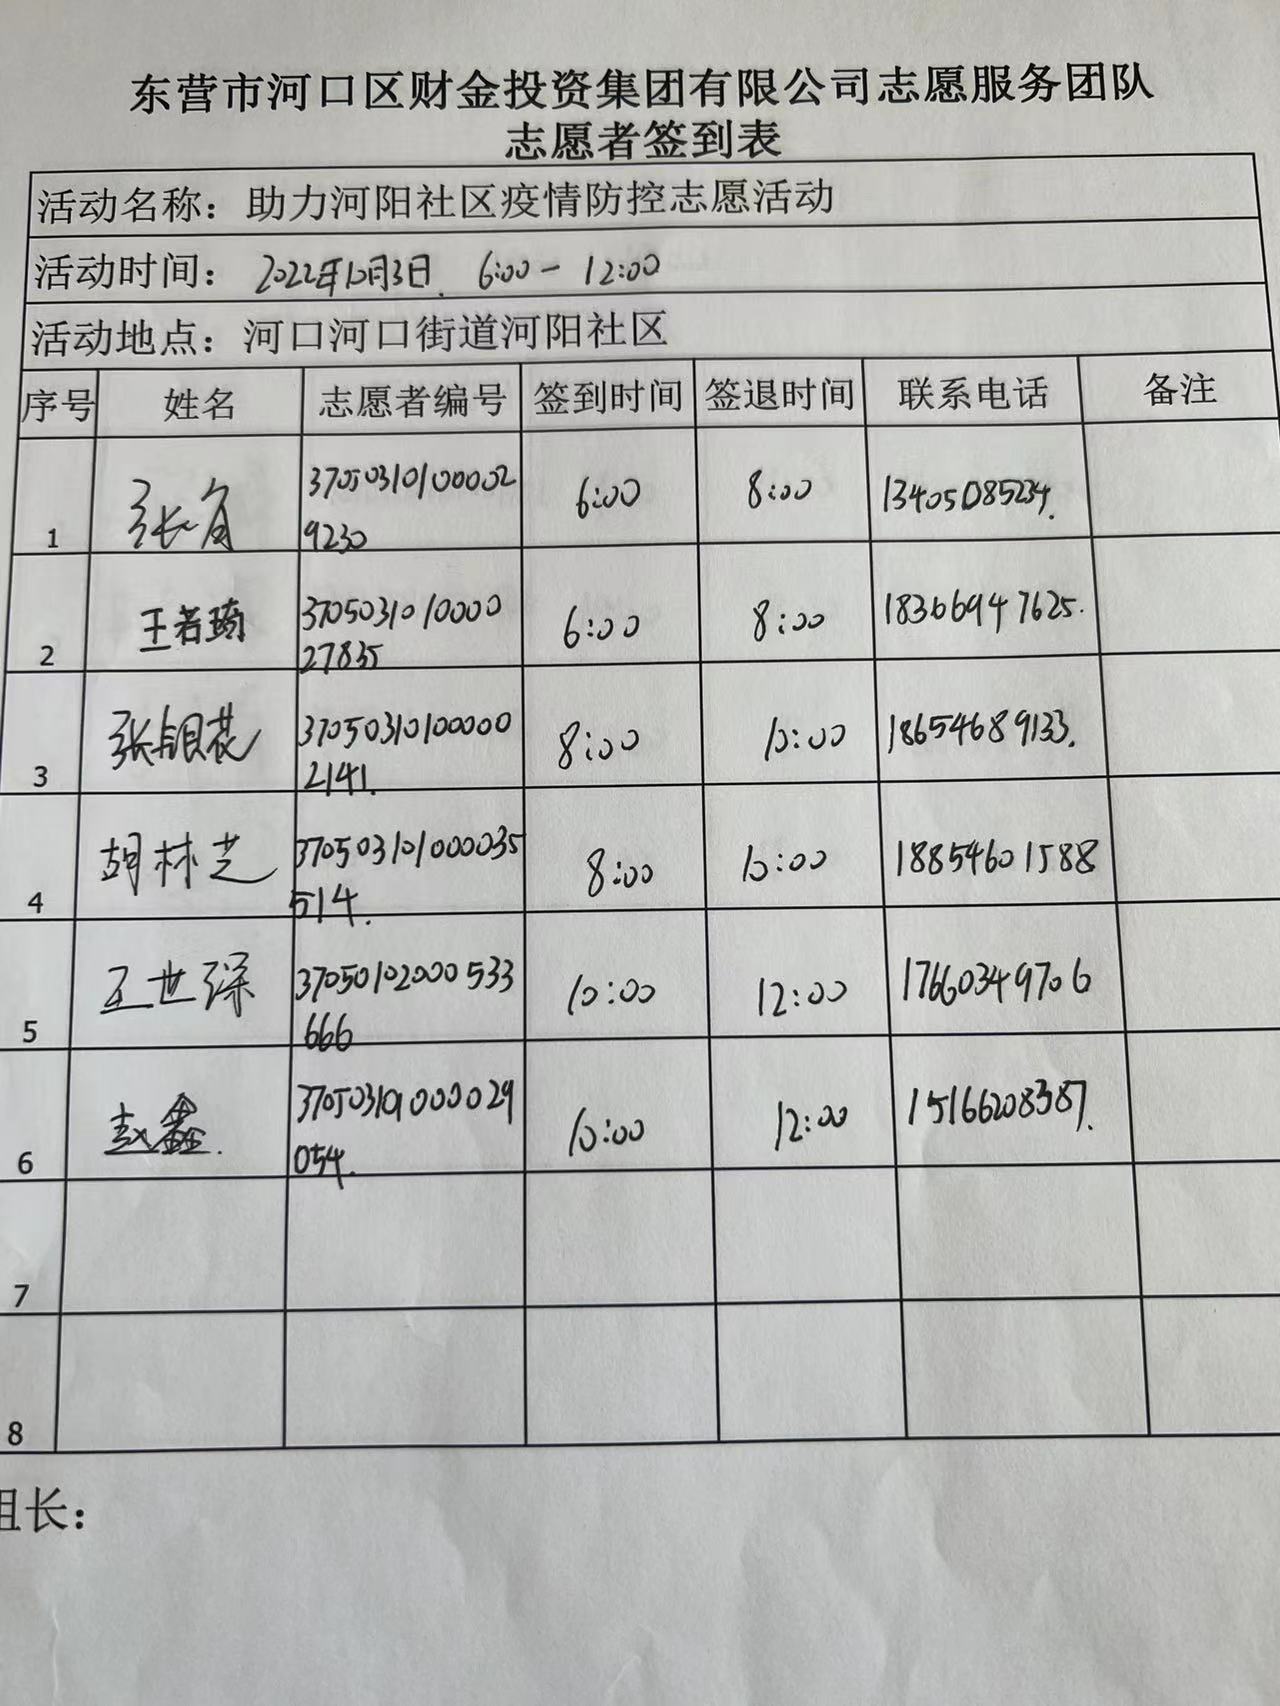 东营市河口区财金投资集团有限公司志愿服务团队
志愿者签到表
活动名称：助力河阳社区疫情防控志愿活动
活动时间：2022年10月3日. 6:00－12:00
活动地点：河口河口街道河阳社区
序号 姓名 志愿者编号 签到时间 签退时间 联系电话 备注
1 张 370503101000029230 6:00 8:00 13405085234.
2 王若琦 370503101000027835 6:00 8:00 18366947625.
3 张银花 370503101000002141. 8:00 10:00 18654689133.
4 胡林芝 370503101000035514. 8:00 10:00 18854601588
5 王世琛 37050102000533666 10:00 12:00 17660349706
6 赵鑫. 370503101000029054. 10:00 12:00 15166208387.
7
8
组长：